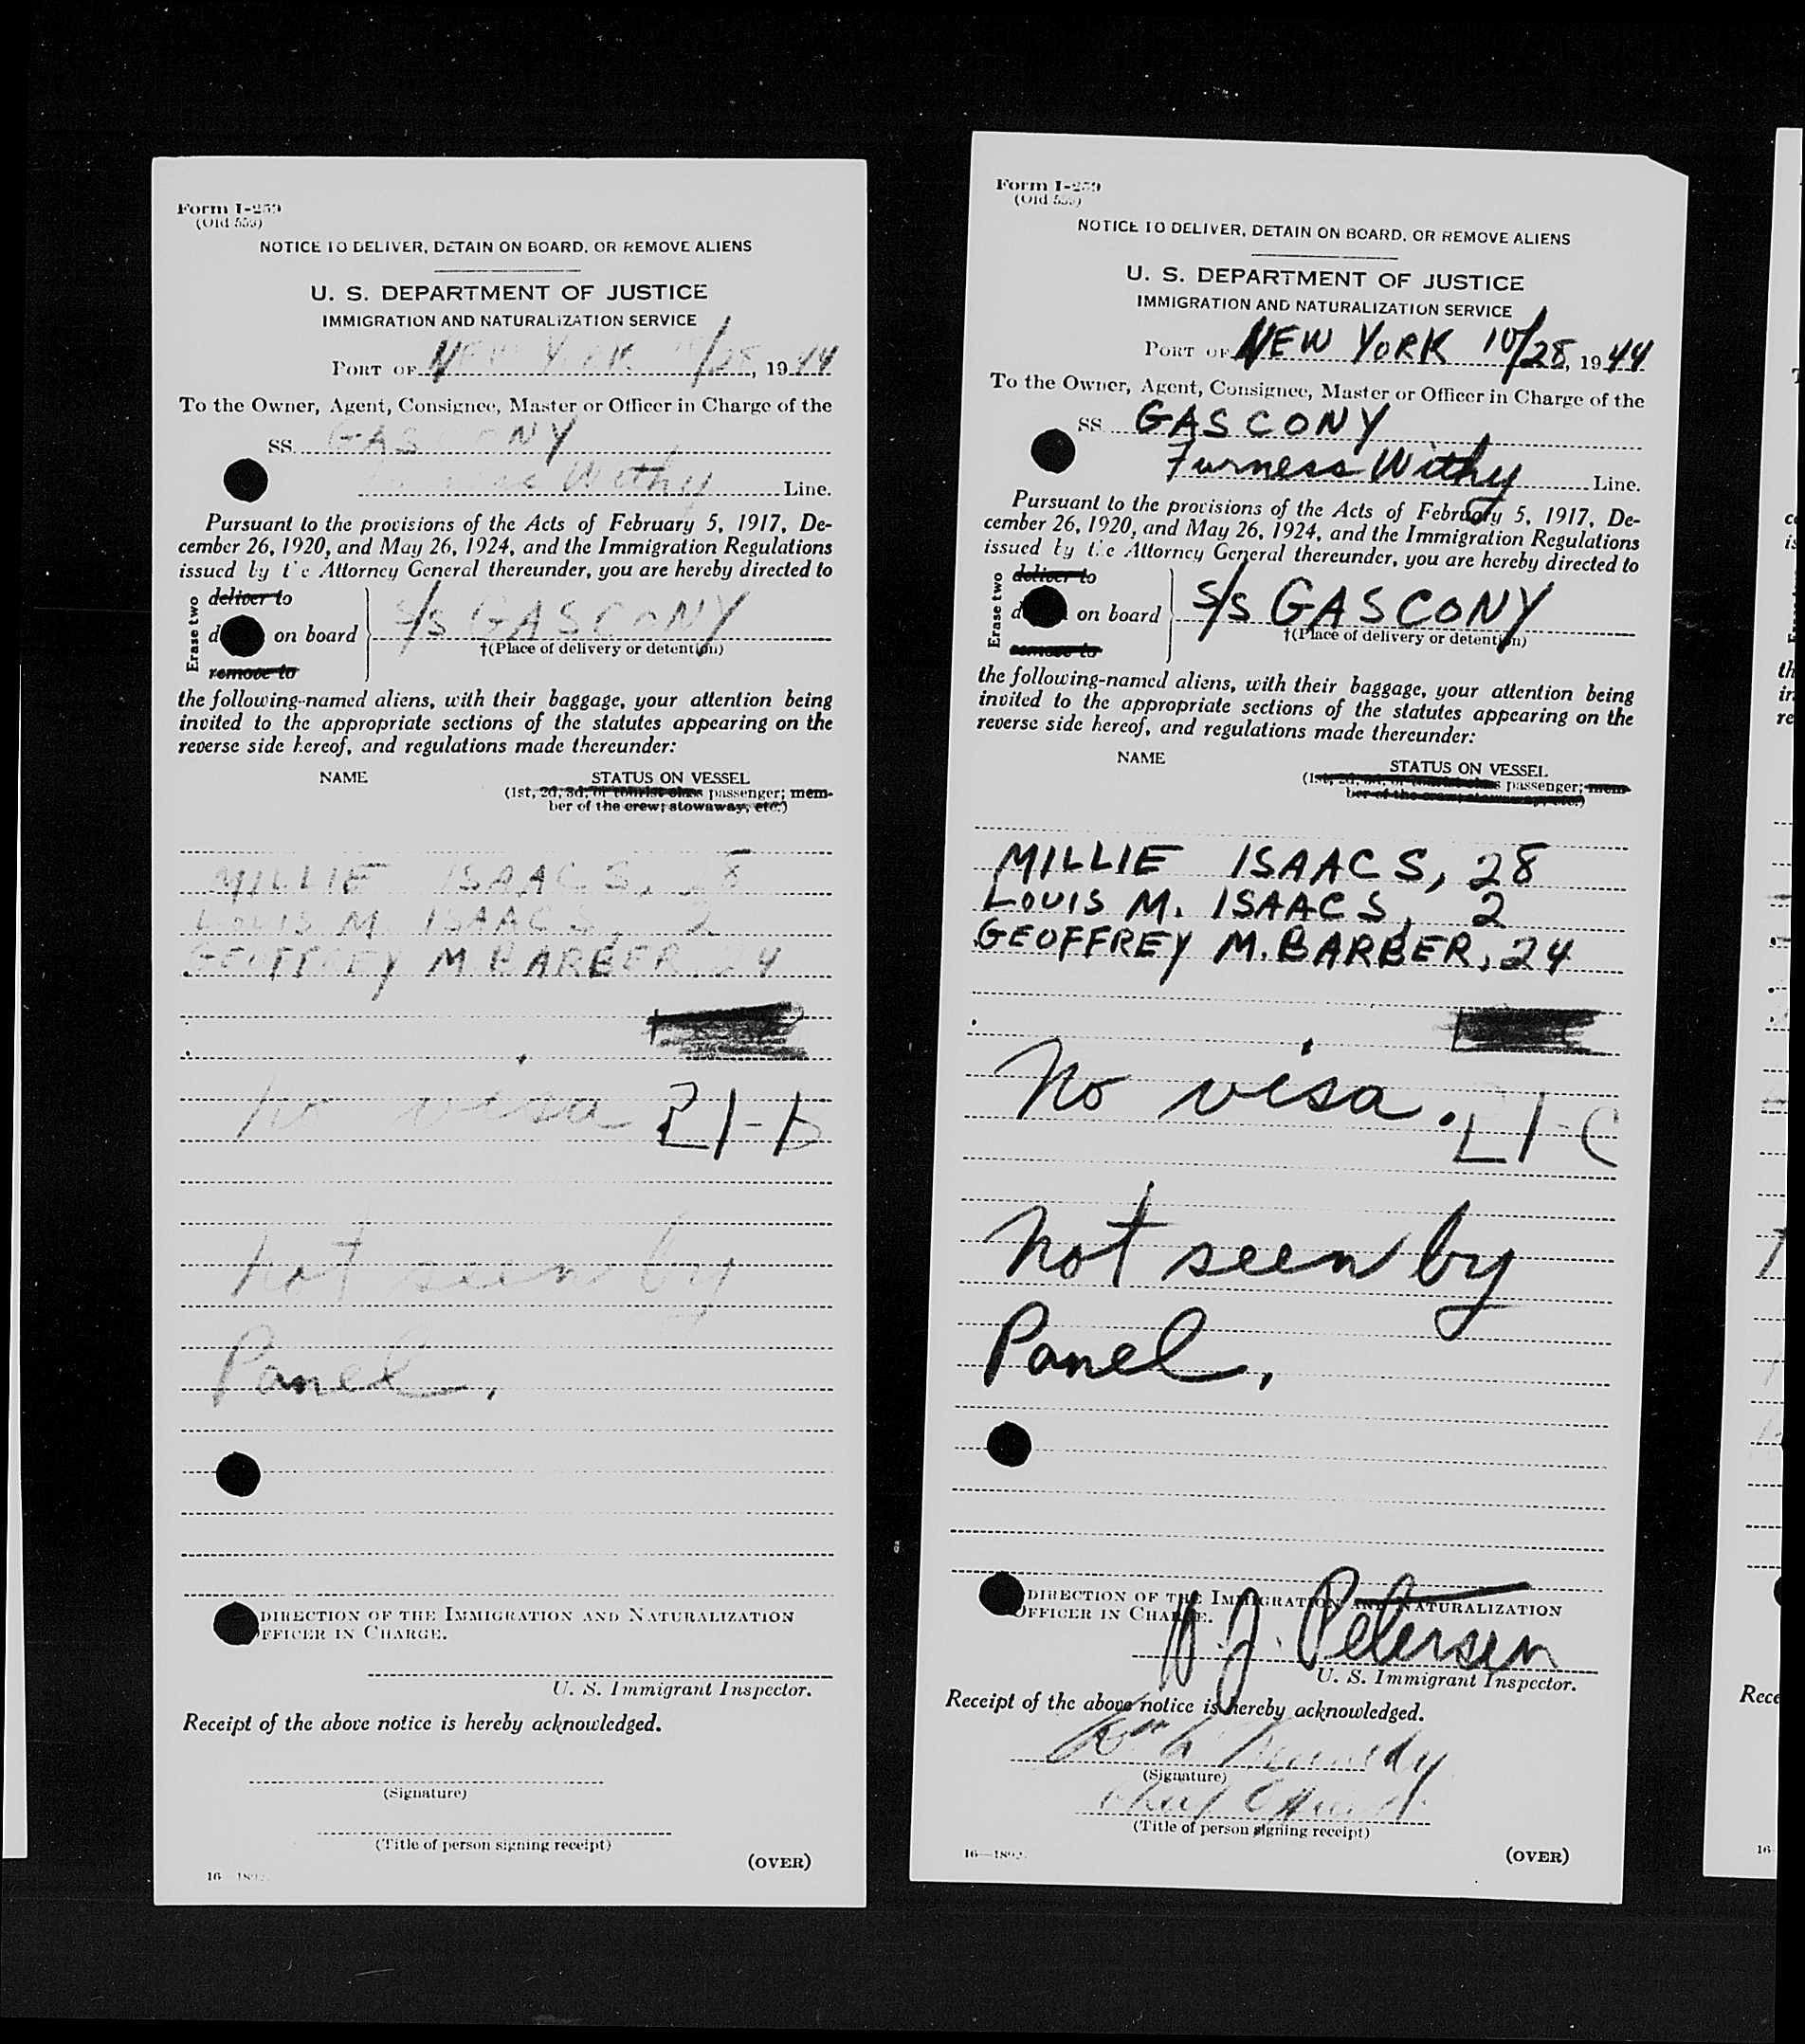 Form I-259
(Old 553)
NOTICE TO DELIVER, DETAIN ON BOARD, OR REMOVE ALIENS
U. S. DEPARTMENT OF JUSTICE
IMMIGRATION AND NATURALIZATION SERVICE
PORT OF NEW YORK 10/28, 1944
To the Owner, Agent, Consignee, Master or Officer in Charge of the
SS. GASCONY
Furness Withy Line.
Pursuant to the provisions of the Acts of February 5, 1917, De-
cember 26, 1920, and May 26, 1924, and the Immigration Regulations
issued by the Attorney General thereunder, you are hereby directed to
Erase two
deliver to
on board S/S GASCONY
†(Place of delivery or detention)
remove to
the following-named aliens, with their baggage, your attention being
invited to the appropriate sections of the statutes appearing on the
reverse side hereof, and regulations made thereunder:
NAME STATUS ON VESSEL
(1st, 2d, 3d, or tourist class passenger; mem-
ber of the crew; stowaway, etc.)
MILLIE ISAACS, 28
LOUIS M. ISAACS, 2
GEOFFREY M. BARBER, 24
no visa 21-B
not seen by
Panel.
DIRECTION OF THE IMMIGRATION AND NATURALIZATION
OFFICER IN CHARGE.
U. S. Immigrant Inspector.
Receipt of the above notice is hereby acknowledged.
(Signature)
(Title of person signing receipt)
(OVER)
Form I-259
(Old 553)
NOTICE TO DELIVER, DETAIN ON BOARD, OR REMOVE ALIENS
U. S. DEPARTMENT OF JUSTICE
IMMIGRATION AND NATURALIZATION SERVICE
PORT OF NEW YORK 10/28, 1944
To the Owner, Agent, Consignee, Master or Officer in Charge of the
SS. GASCONY
Furness Withy Line.
Pursuant to the provisions of the Acts of February 5, 1917, De-
cember 26, 1920, and May 26, 1924, and the Immigration Regulations
issued by the Attorney General thereunder, you are hereby directed to
Erase two
deliver to
on board S/S GASCONY
†(Place of delivery or detention)
remove to
the following-named aliens, with their baggage, your attention being
invited to the appropriate sections of the statutes appearing on the
reverse side hereof, and regulations made thereunder:
NAME STATUS ON VESSEL
(1st, 2d, 3d, or tourist class passenger; mem-
ber of the crew; stowaway, etc.)
MILLIE ISAACS, 28
LOUIS M. ISAACS, 2
GEOFFREY M. BARBER, 24
No visa. 21-C
not seen by
Panel.
DIRECTION OF THE IMMIGRATION AND NATURALIZATION
OFFICER IN CHARGE.
Petersen
U. S. Immigrant Inspector.
Receipt of the above notice is hereby acknowledged.
Kennedy
(Signature)
Chief Officer
(Title of person signing receipt)
(OVER)